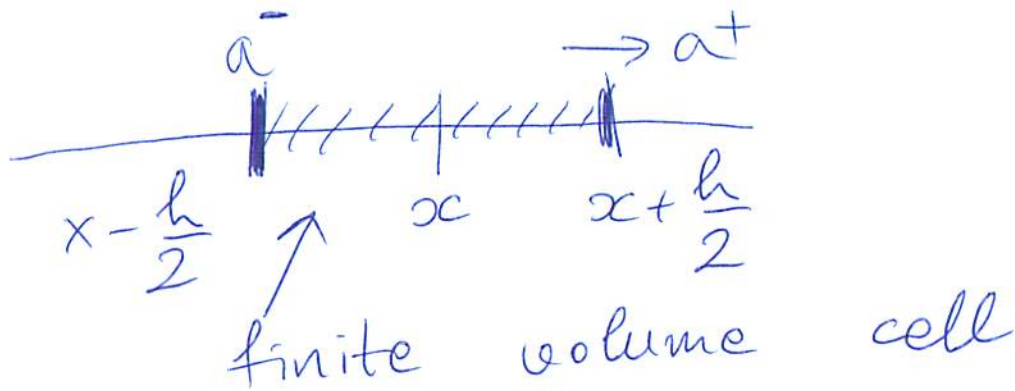 a⁻ → a⁺
x - h/2 x x + h/2
finite volume cell